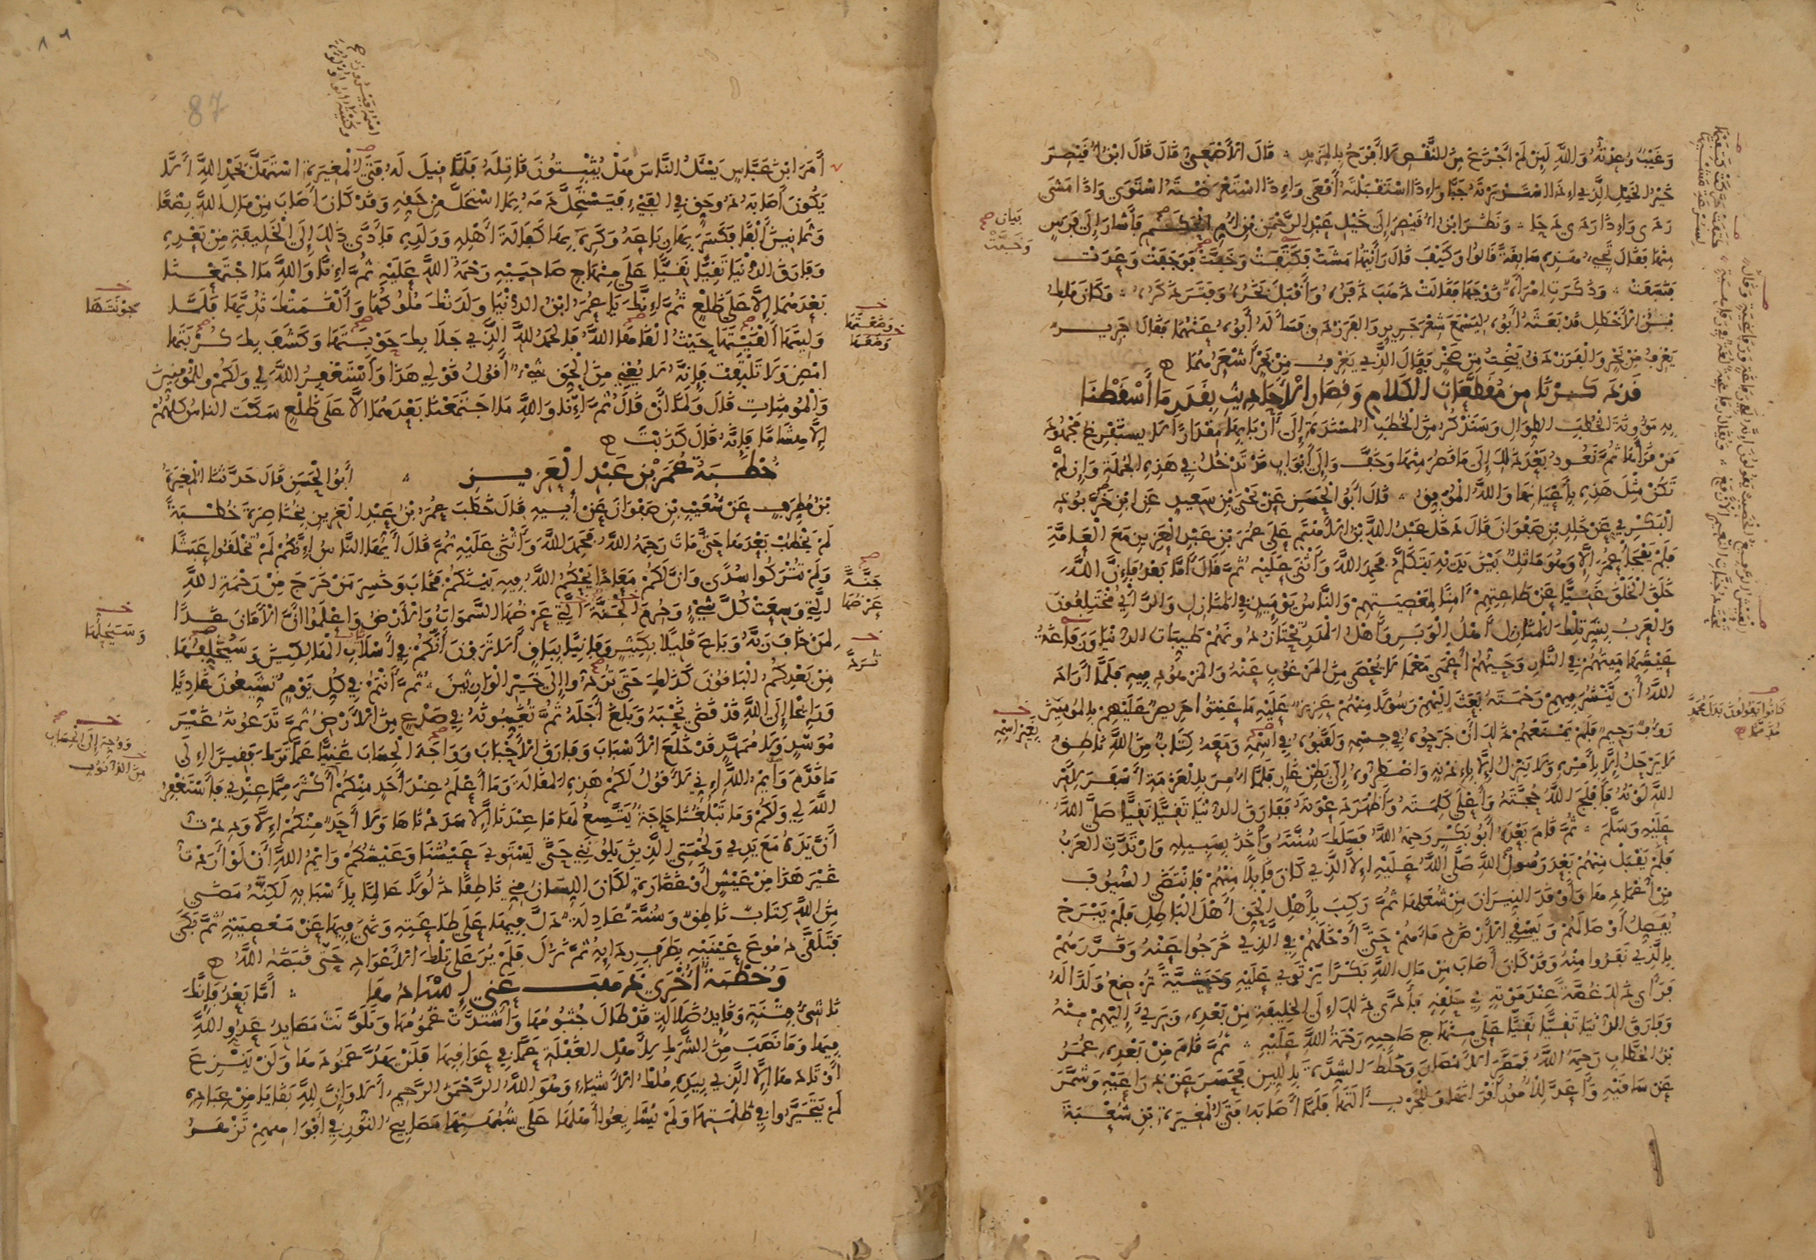 وَعَيْبٌ وعدته والله لئن لم أجزع من النقص لا أفرح بالمزيد قال الأصمعي قال قال ابن أقيصر
خير الخيل الذي إذا استدبرته جبا وإذا استقبلته أقعى وإذا استعرضته استوى وإذا مشى
ردى وإذا ردى دحا ونظر ابن أقيصر إلى خيل عبد الرحمن بن أم الحكم فأشار إلى فرس
منها فقال تجيء هذه سابقة قالوا وكيف قال رأيتها مشت فكتفت وخبت فوجفت وعدت
فنسفت وذكرت امرأة زوجها فقالت ذهب ذفره وأقبل بخره وفتر ذكره وكان مالك
بن الأخطل قد بعثه أبوه ليسمع شعر جرير والفرزدق فسأله أبوه عنهما فقال جرير
يغرف من بحر والفرزدق ينحت من صخر فقال الذي يغرف من بحر أشعرهما
قد ذكرنا من مقطعات الكلام وقصار الأحاديث بقدر ما أسقطنا
به مؤونة الخطب الطوال وسنذكر من الخطب المسندة إلى أربابها مقدارا لا يستفرغ مجهود
من قرأها ثم نعود بعد ذلك إلى ما قصر منها وخف وإلى أبواب قد تدخل في هذه الجملة وإن لم
تكن مثل هذه بأعيانها والله الموفق قال أبو الحسن عن يحيى بن سعيد عن ابن خربوذ
البكري عن خالد بن صفوان قال دخل عبد الله بن الأهتم على عمر بن عبد العزيز مع العامة
فلم يفجأ عمر إلا وهو ماثل بين يديه يتكلم فحمد الله وأثنى عليه ثم قال أما بعد فإن الله
خلق الخلق غنيا عن طاعتهم آمنا لمعصيتهم والناس يومئذ في المنازل والرأي مختلفون
والعرب بشر تلك المنازل أهل الوبر وأهل المدر تحتاز دونهم طيبات الدنيا ورفاغة
عيشها ميتهم في النار وحيهم أعمى مع ما لا يحصى من المرغوب عنه والمزهود فيه فلما أراد
الله أن ينشر فيهم رحمته بعث إليهم رسولا منهم عزيز عليه ما عنتوا حريص عليهم بالمؤمنين
رؤوف رحيم فلم يمنعهم ذلك أن جرحوه في جسمه ولقبوه في اسمه ومعه كتاب من الله ناطق
لا يرحل إلا بأمره ولا ينزل إلا بإذنه واضطروه إلى بطن غار فلما أمر بالعزمة أسفر لأمر
الله لونه فأفلج الله حجته وأعلى كلمته وأظهر دعوته ففارق الدنيا تقيا نقيا صلى الله
عليه وسلم ثم قام بعده أبو بكر رحمه الله فسلك سنته وأخذ بسبيله وارتدت العرب
فلم يقبل منهم بعد رسول الله صلى الله عليه إلا الذي كان قابلا منهم فانتضى السيوف
من أغمادها وأوقد النيران من شعلها ثم ركب بأهل الحق أهل الباطل فلم يبرح
يفصل أوصالهم ويسقي الأرض دماءهم حتى أدخلهم في الذي خرجوا عنه وقررهم
بالذي نفروا منه وقد كان أصاب من مال الله بكرا يرتوي عليه وحبشية ترضع ولدا له
فرأى ذلك غصة عند موته في حلقه فأدى ذلك إلى الخليفة من بعده وبرئ إليهم منه
وفارق الدنيا تقيا نقيا على منهاج صاحبه رحمة الله عليه ثم قام من بعده عمر
بن الخطاب رحمه الله فمصر الأمصار وخلط الشدة باللين فحسر عن ذراعيه وشمر
عن ساقيه وأعد للأمور أقرانها وللحرب آلتها فلما أصابه فتى المغيرة بن شعبة
87
أمر ابن عباس يسأل الناس هل يثبتون قاتله فلما قيل له فتى المغيرة استهل بحمد الله ألا
يكون أصابه ذو حق في الفيء فيستحل دمه بما استحل من حقه وقد كان أصاب من مال الله بضعا
وثمانين ألفا فكسر بها رباعه وكره بها كفالة أهله وولده فأدى ذلك إلى الخليفة من بعده
وفارق الدنيا تقيا نقيا على منهاج صاحبيه رحمة الله عليه ثم إنا والله ما اجتمعنا
بعدهما إلا على ظلع ثم إنك يا عمر ابن الدنيا ولدتك ملوكها وألقمتك ثديها فلما
وليتها ألقيتها حيث ألقاها الله فالحمد لله الذي جلا بك حوبتها وكشف بك كربتها
امض ولا تلتفت فإنه لا يغني من الحق شيء أقول قولي هذا وأستغفر الله لي ولكم وللمؤمنين
والمؤمنات قال ولما أن قال ثم إنا والله ما اجتمعنا بعدهما إلا على ظلع سكت الناس كلهم
إلا هشاما فإنه قال كذبت
خطبة عمر بن عبد العزيز أبو الحسن قال حدثنا المغيرة
بن مطرف عن شعيب بن صفوان عن أبيه قال خطب عمر بن عبد العزيز بخناصرة خطبة
لم يخطب بعدها حتى مات رحمه الله فحمد الله وأثنى عليه ثم قال أيها الناس إنكم لم تخلقوا عبثا
ولم تتركوا سدى وإن لكم معادا يحكم الله فيه بينكم فخاب وخسر من خرج من رحمة الله
التي وسعت كل شيء وحرم الجنة التي عرضها السموات والأرض واعلموا أن الأمان غدا
لمن خاف ربه وباع قليلا بكثير وفانيا بباق ألا ترون أنكم في أسلاب الهالكين وسيخلفها
من بعدكم الباقون كذلك حتى تردوا إلى خير الوارثين ثم أنتم في كل يوم تشيعون غاديا
ورائحا إلى الله قد قضى نحبه وبلغ أجله ثم تغيبونه في صدع من الأرض ثم تدعونه غير
موسد ولا ممهد قد خلع الأسباب وفارق الأحباب وواجه الحساب غنيا عما ترك فقيرا إلى
ما قدم وأيم الله إني لأقول لكم هذه المقالة وما أعلم عند أحد منكم أكثر مما عندي فأستغفر
الله لي ولكم وما تبلغنا حاجة يتسع لها ما عندنا إلا سددناها ولا أحد منكم إلا وددت
أن يده مع يدي ولحمتي الذين يلونني حتى يستوي عيشنا وعيشكم وايم الله أن لو أردت
غير هذا من عيش أو غضارة لكان اللسان مني ناطقا ذلولا عالما بأسبابه لكنه مضى
من الله كتاب ناطق وسنة عادلة دل فيها على طاعته ونهى فيها عن معصيته ثم بكى
فتلقى دموع عينيه بطرف ردائه ثم نزل فلم ير على تلك الأعواد حتى قبضه الله
وخطبة أخرى ذهب عني إسنادها أما بعد فإنك
ناشئ فتنة وقائد ضلالة قد طال جثومها واشتدت غمومها وتلونت مصايد عدو الله
فيها وما نصب من الشرك لأهل الغفلة عما في عواقبها فلن يهد عمودها ولن ينزع
أوتادها إلا الذي بيده ملك الأشياء وهو الله الرحمن الرحيم ألا وإن لله بقايا من عباده
لم يتحيروا في ظلمتها ولم يشايعوا أهلها على شبهتها مصابيح النور في أفواههم تزهر